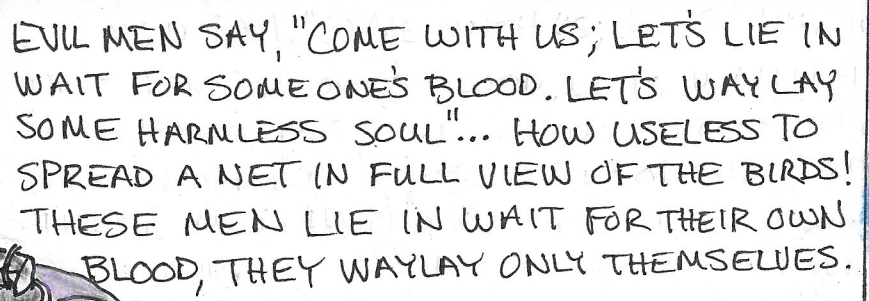 EVIL MEN SAY, "COME WITH US; LET'S LIE IN
WAIT FOR SOMEONE'S BLOOD. LET'S WAYLAY
SOME HARMLESS SOUL"... HOW USELESS TO
SPREAD A NET IN FULL VIEW OF THE BIRDS!
THESE MEN LIE IN WAIT FOR THEIR OWN
BLOOD, THEY WAYLAY ONLY THEMSELVES.